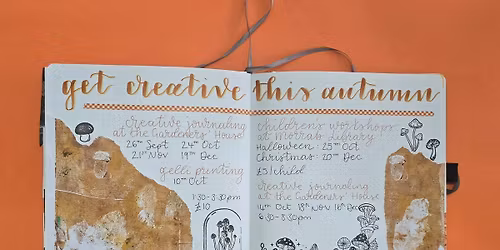 get creative this autumn
creative journaling
at the Gardeners' House
26th Sept 24th Oct
21st Nov 19th Dec
gelli printing
10th Oct
1:30-3:30pm
£10
children's workshops
at Morrab Library
Halloween: 25th Oct
Christmas: 20th Dec
£5/child
creative journaling
at the Gardeners' House
14th Oct 18th Nov 16th Dec
6:30-8:30pm